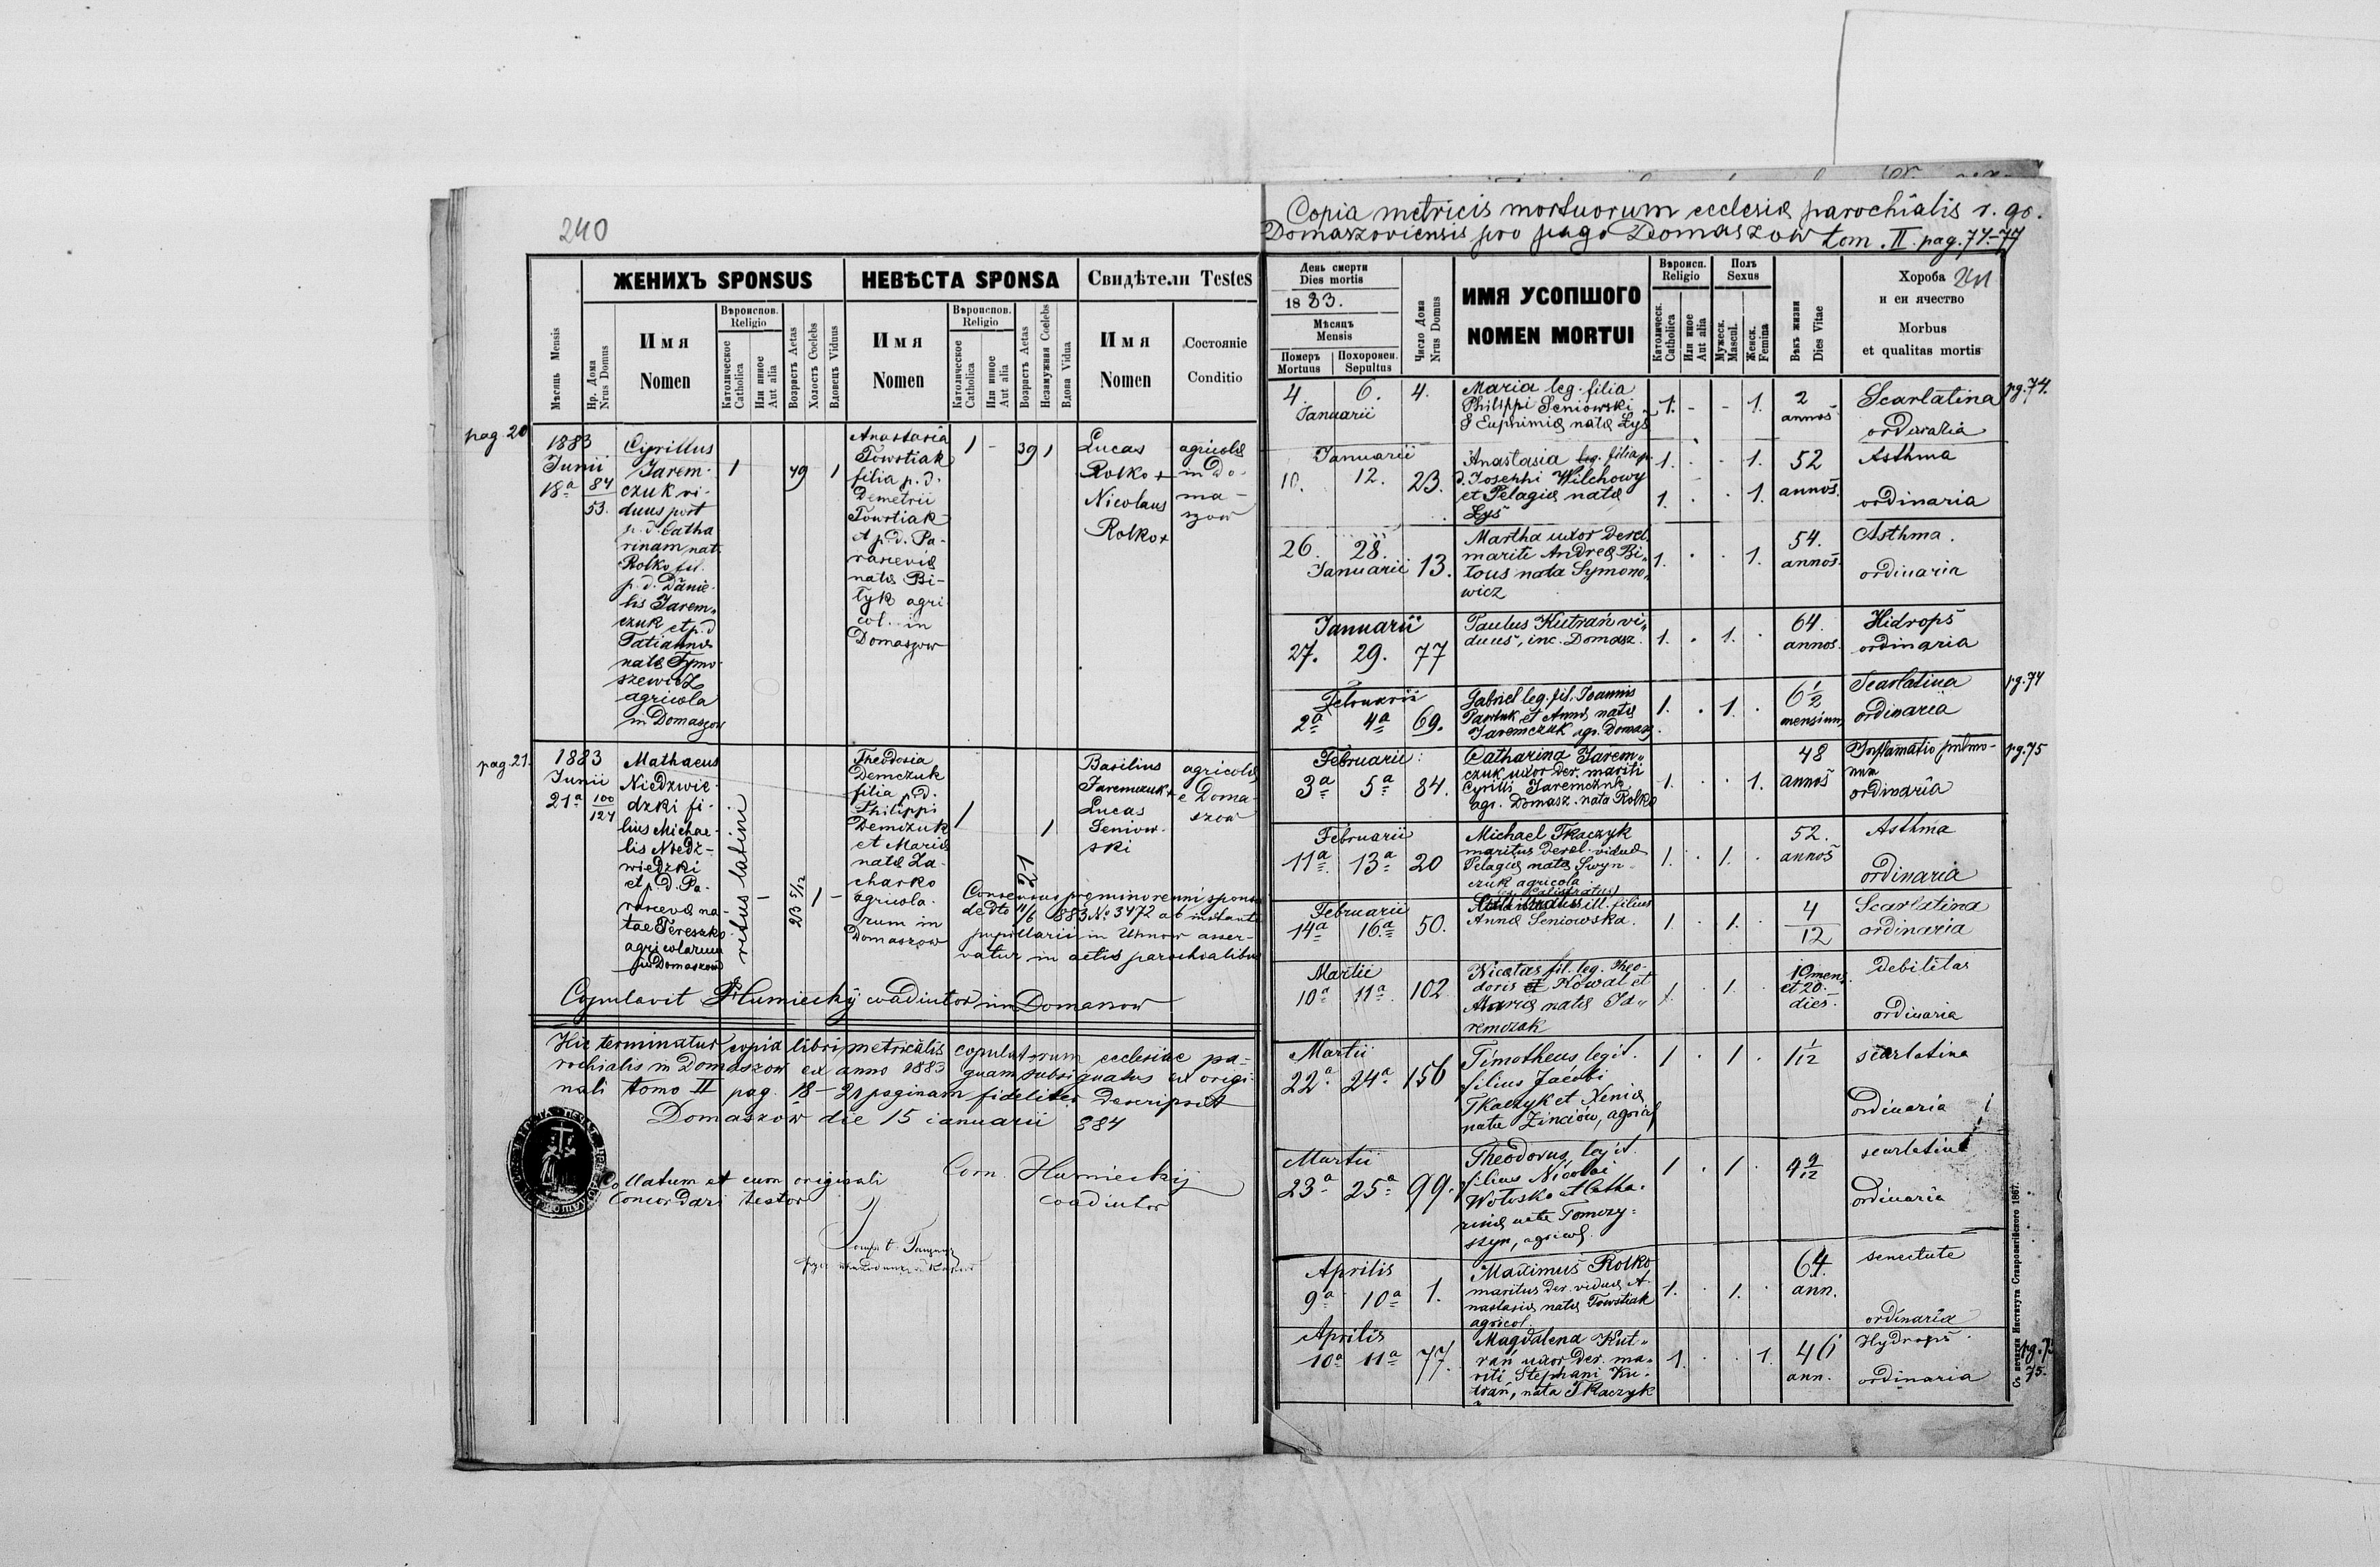 240
ЖЕНИХЪ SPONSUS
НЕВѢСТА SPONSA
Свидѣтели Testes
Мѣсяць Mensis
Нр. Дома
Nrus Domus
Имя
Nomen
Вѣроиспов.
Religio
Католическое
Catholica
Или иное
Aut alia
Возрастъ Aetas
Холостъ Coelebs
Вдовецъ Viduus
Имя
Nomen
Вѣроиспов.
Religio
Католическое
Catholica
Или иное
Aut alia
Возрастъ Aetas
Незамужная Coelebs
Вдова Vidua
Имя
Nomen
Состояніе
Conditio
pag. 20
1883
Junii
18ª
84
53.
Cyrillus
Jarem-
czuk vi-
duus post
p. d. Catha
rinam nat.
Rolko fil.
p. d. Danie-
lis Jarem-
czuk et p. d
Tatianna
natæ Tymo-
szewicz
agricola
in Domaszow
1
49
1
Anastasia
Towstiak
filia p. d.
Demetrii
Towstiak
et p. d. Pa-
rasceviæ
natæ Bi-
tyk agri
col. in
Domaszow
1
-
39
1
Lucas
Rolko +
Nicolaus
Rolko +
agricolæ
in Do-
ma-
szow
pag. 21.
1883
Junii
21ª
100
124
Mathaeus
Niedzwie-
dzki fi-
lius Michae-
lis Niedz-
wiedzki
et p. d. Pa-
rascevæ na-
tae Tereszko
agricolarum
in Domaszow
ritus latini
-
23 5/12
1
-
Theodosia
Demczuk
filia p. d.
Philippi
Demczuk
et Mariæ
natæ Za-
charko
agricola-
rum in
Domaszow
1
21
1
Basilius
Jaremczuk +
Lucas
Seniow-
ski
agricolæ
e Doma-
szow
Consensus pro minorenni sponsa
de dto 11/6 883 No 3472 ab instantia
pupillari in Uhnow asser-
vatur in actis parochialibus
Copulavit Humieckij coadiutor in Domaszow
Hic terminatur copia libri metricalis copulatorum ecclesiae pa-
rochialis in Domaszow ex anno 1883 quam subsignatus ex origi-
nali tomo II pag. 18 - 21 paginam fideliter descripsit
Domaszow die 15 ianuarii 884
Collatum et cum originali
Concordari testor
Corn. Humieckij
coadiutor
Copia metricis mortuorum ecclesiæ parochialis r. gr.
Domaszoviensis pro pago Domaszow tom. II. pag. 74-77
241
День смерти
Dies mortis
1883.
Мѣсяць
Mensis
Померъ
Mortuus
Похоронен.
Sepultus
Число Дома
Nrus Domus
ИМЯ УСОПШОГО
NOMEN MORTUI
Вѣроисп.
Religio
Католическ.
Catholica
Или иное
Aut alia
Полъ
Sexus
Мужеск.
Mascul.
Женск.
Femina
Вѣкъ жизни
Dies Vitae
Хороба
и еи ячество
Morbus
et qualitas mortis
4. 6. 4.
Januarii
Maria leg. filia
Philippi Seniowski
& Euphimiæ natæ Łyś
1. - - 1.
2
annos
Scarlatina
ordinaria
pg. 74.
Januarii
10. 12. 23.
Anastasia leg. filia p.
d. Josephi Wilchowy
et Pelagiæ natæ
Łyś
1. . . 1.
1. . . 1.
52
annos.
Asthma
ordinaria
26. 28. 13.
Januarii
Martha uxor derel.
mariti Andreæ Bi-
tous nata Symono-
wicz
1. . . 1.
54.
annos.
Asthma.
ordinaria
Januarii
27. 29. 77
Paulus Kutrań vi-
duus, inc. Domasz.
1. . 1. .
64.
annos.
Hidrops
ordinaria
Februarii
2ª 4ª 69.
Gabriel leg. fil. Joannis
Pawluk et Annæ natæ
Jaremczuk agr. Domasz.
1. . 1. .
6 1/2
mensium
Scarlatina
ordinaria
pg. 74
Februarii
3ª 5ª 84.
Catharina Jarem-
czuk uxor der. mariti
Cyrilli Jaremczuk
agr. Domasz. nata Rolko
1. . . 1.
48
annos
Inflamatio pulmo-
num
ordinaria
pg. 75
Februarii
11ª 13ª 20
Michael Tkaczyk
maritus derel. viduæ
Pelagiæ natæ Swyn-
czuk agricola
1. . 1. .
52.
annos
Asthma
ordinaria
Februarii
14ª 16ª 50.
ill. filius
Annæ Seniowska.
1. . 1. .
4
12
Scarlatina
ordinaria
Martii
10ª 11ª 102
Nicetas fil. leg. Theo-
doris Kowal et
Mariæ natæ Ja-
remczuk
1 . 1. .
10 mens.
et 20.
dies.
Debilitas
ordinaria
Martii
22ª 24ª 156
Timotheus legit.
filius Jacobi
Tkaczyk et Xeniæ
natæ Zinciów, agricol
1 . 1 .
1 1/12
scarlatina
ordinaria
Martii
23ª 25ª 99.
Theodorus legit.
filius Nicolai
Wołosko et Catha-
rinæ natæ Tomczy-
szyn, agricol.
1 . 1 .
4 9/12
scarlatina
ordinaria
Aprilis
9ª 10ª 1.
Maximus Rolko
maritus der. viduæ A-
nastasiæ natæ Towstiak
agricol.
1. . 1. .
64.
ann.
senectute
ordinaria
Aprilis
10ª 11ª 77.
Magdalena Kut-
rań uxor der. ma-
riti Stephani Ku-
trań, nata Tkaczyk
1. . . 1.
46
ann.
Hydrops
ordinaria
pg.
75.
Съ печатни Института Ставропигійского 1867.